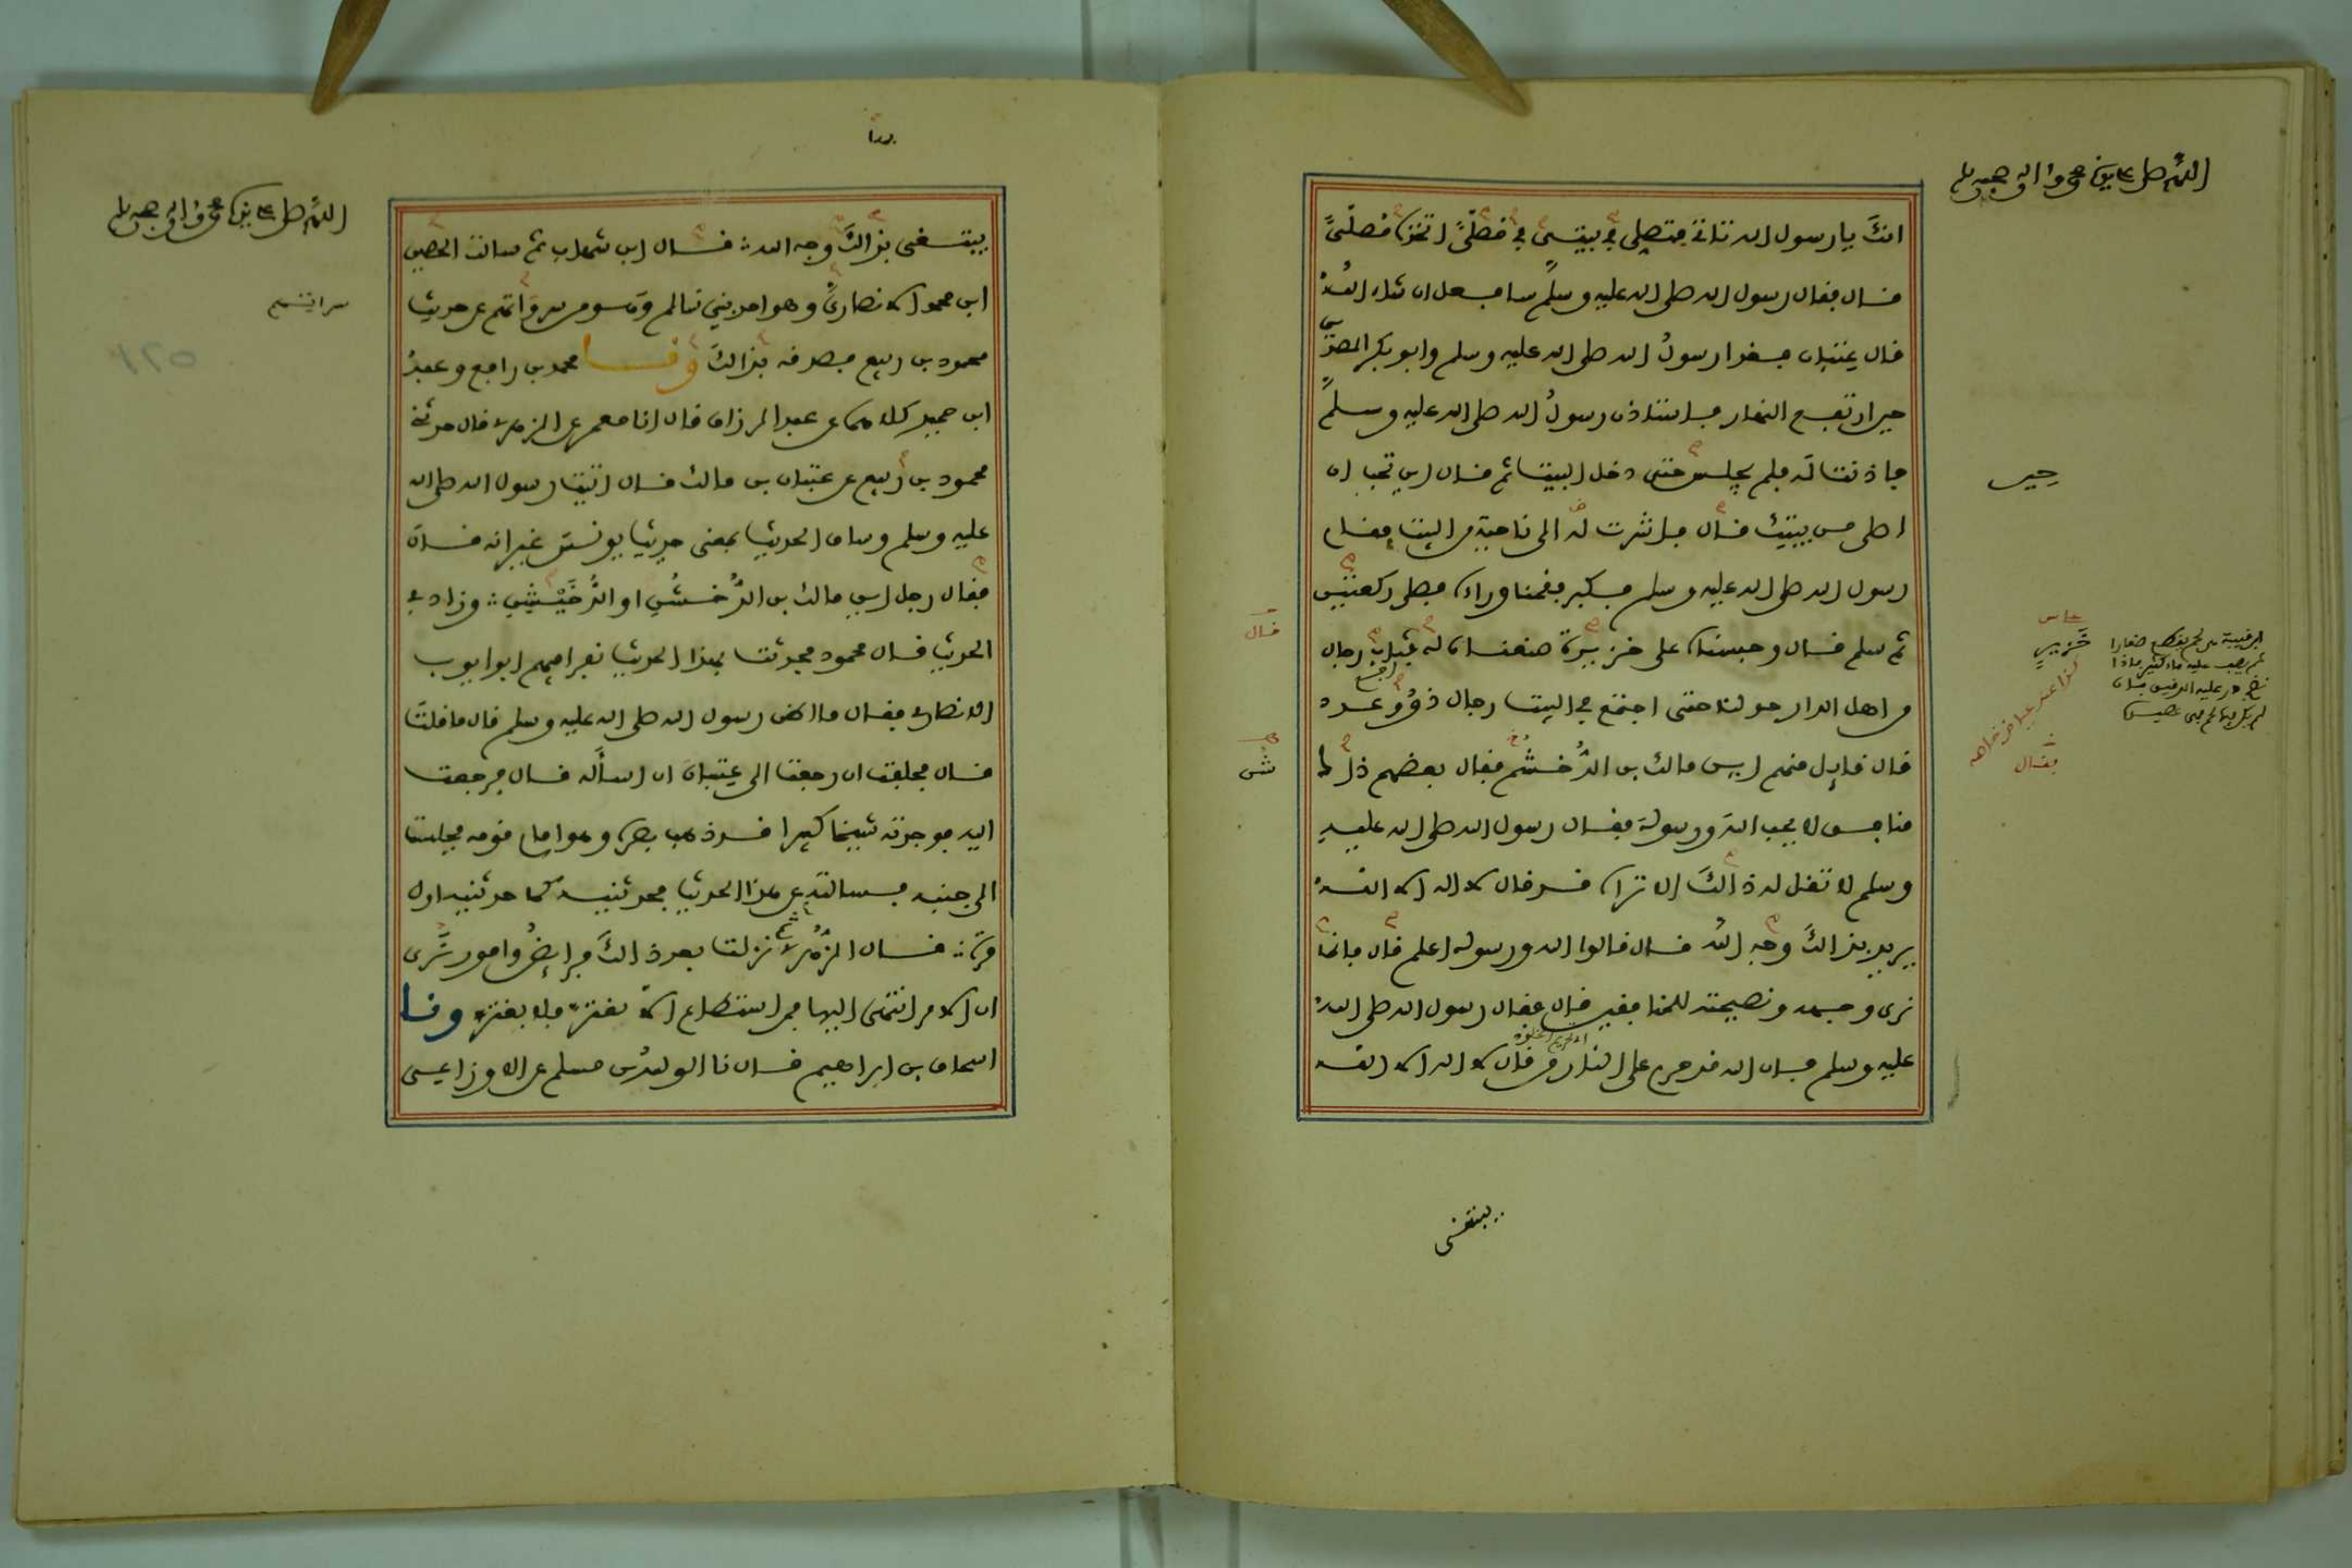 اللهم صل على نبينا محمد وءاله وصحبه وسلم
انك يا رسول الله تاتي فتصلي في بيتي في مصلى اتخذه مصلى
قال فقال رسول الله صلى الله عليه وسلم سافعل ان شاء الله
قال عتبان فغدا رسول الله صلى الله عليه وسلم وابو بكر الصديق
حين ارتفع النهار فاستاذن رسول الله صلى الله عليه وسلم
فاذنت له فلم يجلس حتى دخل البيت ثم قال اين تحب ان
اصلي من بيتك قال فاشرت له الى ناحية من البيت فقام
رسول الله صلى الله عليه وسلم فكبر فقمنا وراءه فصلى ركعتين
ثم سلم قال وحبسناه على خزيرة صنعناه له فثاب رجال
من اهل الدار حولنا حتى اجتمع في البيت رجال ذوو عدد
قال قايل منهم اين مالك بن الدخشم فقال بعضهم ذلك
منافق لا يحب الله ورسوله فقال رسول الله صلى الله عليه
وسلم لا تقل له ذالك الا تراه قد قال لا اله الا الله
يريد بذالك وجه الله قال قالوا الله ورسوله اعلم قال فانما
نرى وجهه ونصيحته للمنافقين قال فقال رسول الله صلى الله
عليه وسلم فان الله قد حرم على النار من قال لا اله الا الله
حين
خزير
فقال
قال
يبتغي
اللهم صل على نبينا محمد وءاله وصحبه وسلم
يبتغي بذالك وجه الله قال ابن شهاب ثم سالت الحصين
ابن محمد الانصاري وهو احد بني سالم وهو من سرواتهم عن حديث
محمود بن ربيع فصدقه بذالك ونا محمد بن رافع وعبد
ابن حميد كلاهما عن عبد الرزاق قال انا معمر عن الزهري قال حدثني
محمود بن ربيع عن عتبان بن مالك قال اتيت رسول الله صلى الله
عليه وسلم وساق الحديث بمعنى حديث يونس غير انه قال
فقال رجل اين مالك بن الدخشن او الدخيشن وزاد في
الحديث قال محمود فحدثت بهذا الحديث نفرا فيهم ابو ايوب
الانصاري فقال ما اظن رسول الله صلى الله عليه وسلم قال ما قلت
قال فحلفت ان رجعت الى عتبان ان اسأله قال فرجعت
اليه فوجدته شيخا كبيرا قد ذهب بصره وهو امام قومه فجلست
الى جنبه فسالته عن هذا الحديث فحدثنيه كما حدثنيه اول
مرة قال الزهري ثم نزلت بعد ذالك فرايض وامور نرى
ان الامر انتهى اليها فمن استطاع الا يغتر فلا يغتر ونا
اسحاق بن ابراهيم قال نا الوليد بن مسلم عن الاوزاعي
سراتهم